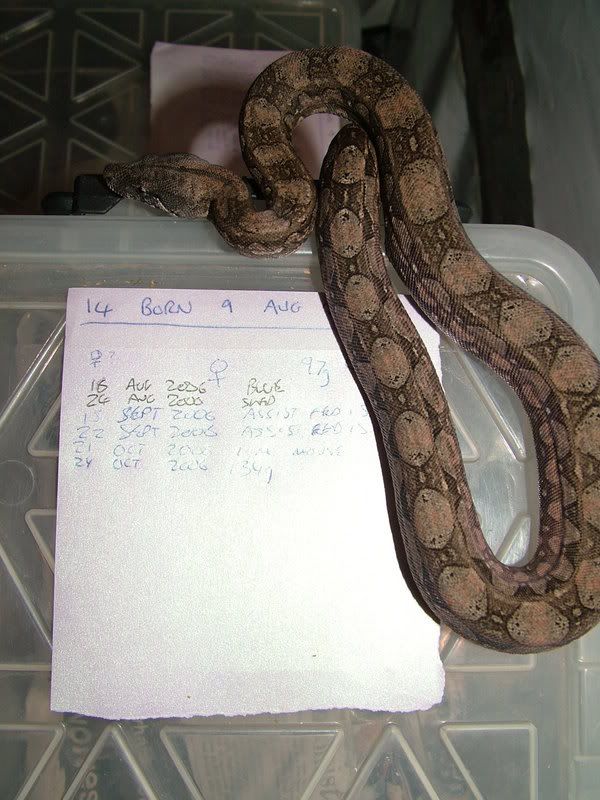 14 BORN 9 AUG
♀? ♀ 97g
18 AUG 2006 BLUE
24 AUG 2006 SHED
15 SEPT 2006 ASSIST FED 1S
22 SEPT 2006 ASSIST FED 1S
21 OCT 2006 MOUSE
24 OCT 2006 134g